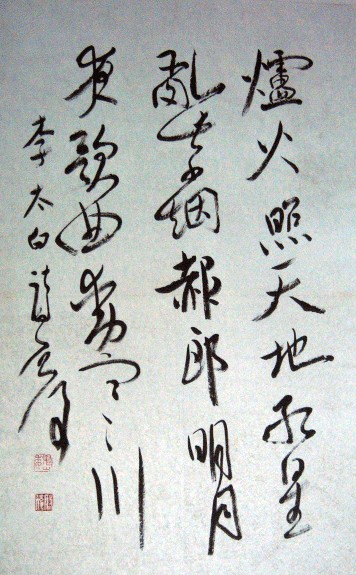 爐火照天地红星
亂紫烟赧郎明月
夜歌曲動寒川
李太白詩